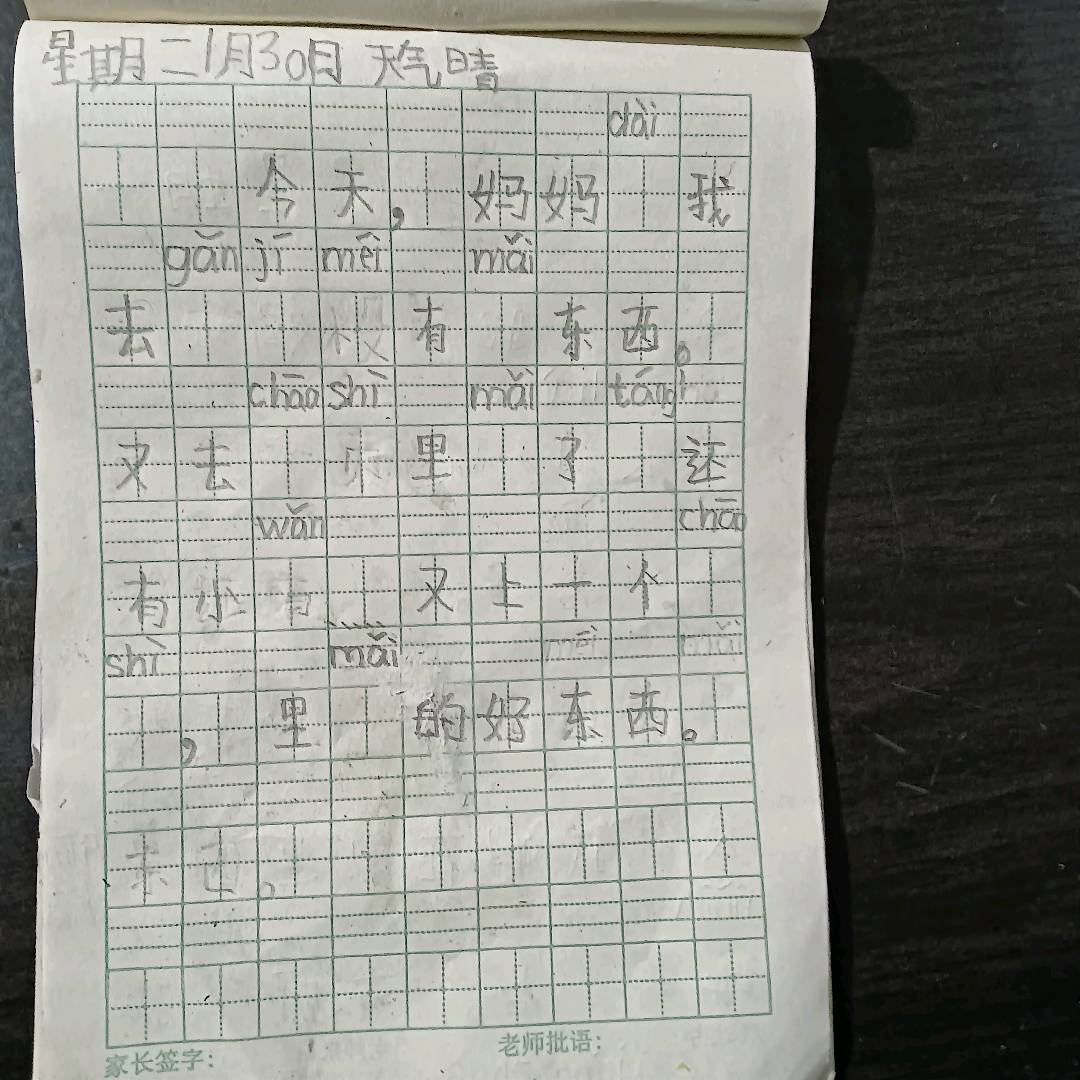 星期二1月30日 天气晴
dài
今天,妈妈 我
gǎn jī měi mǎi
去 没有 东西。
chāo shì mǎi táng
又去 里 了 还
wǎn chāo
有小 又上一个
shì mǎi
, 里 的好东西。
东西。
家长签字: 老师批语: